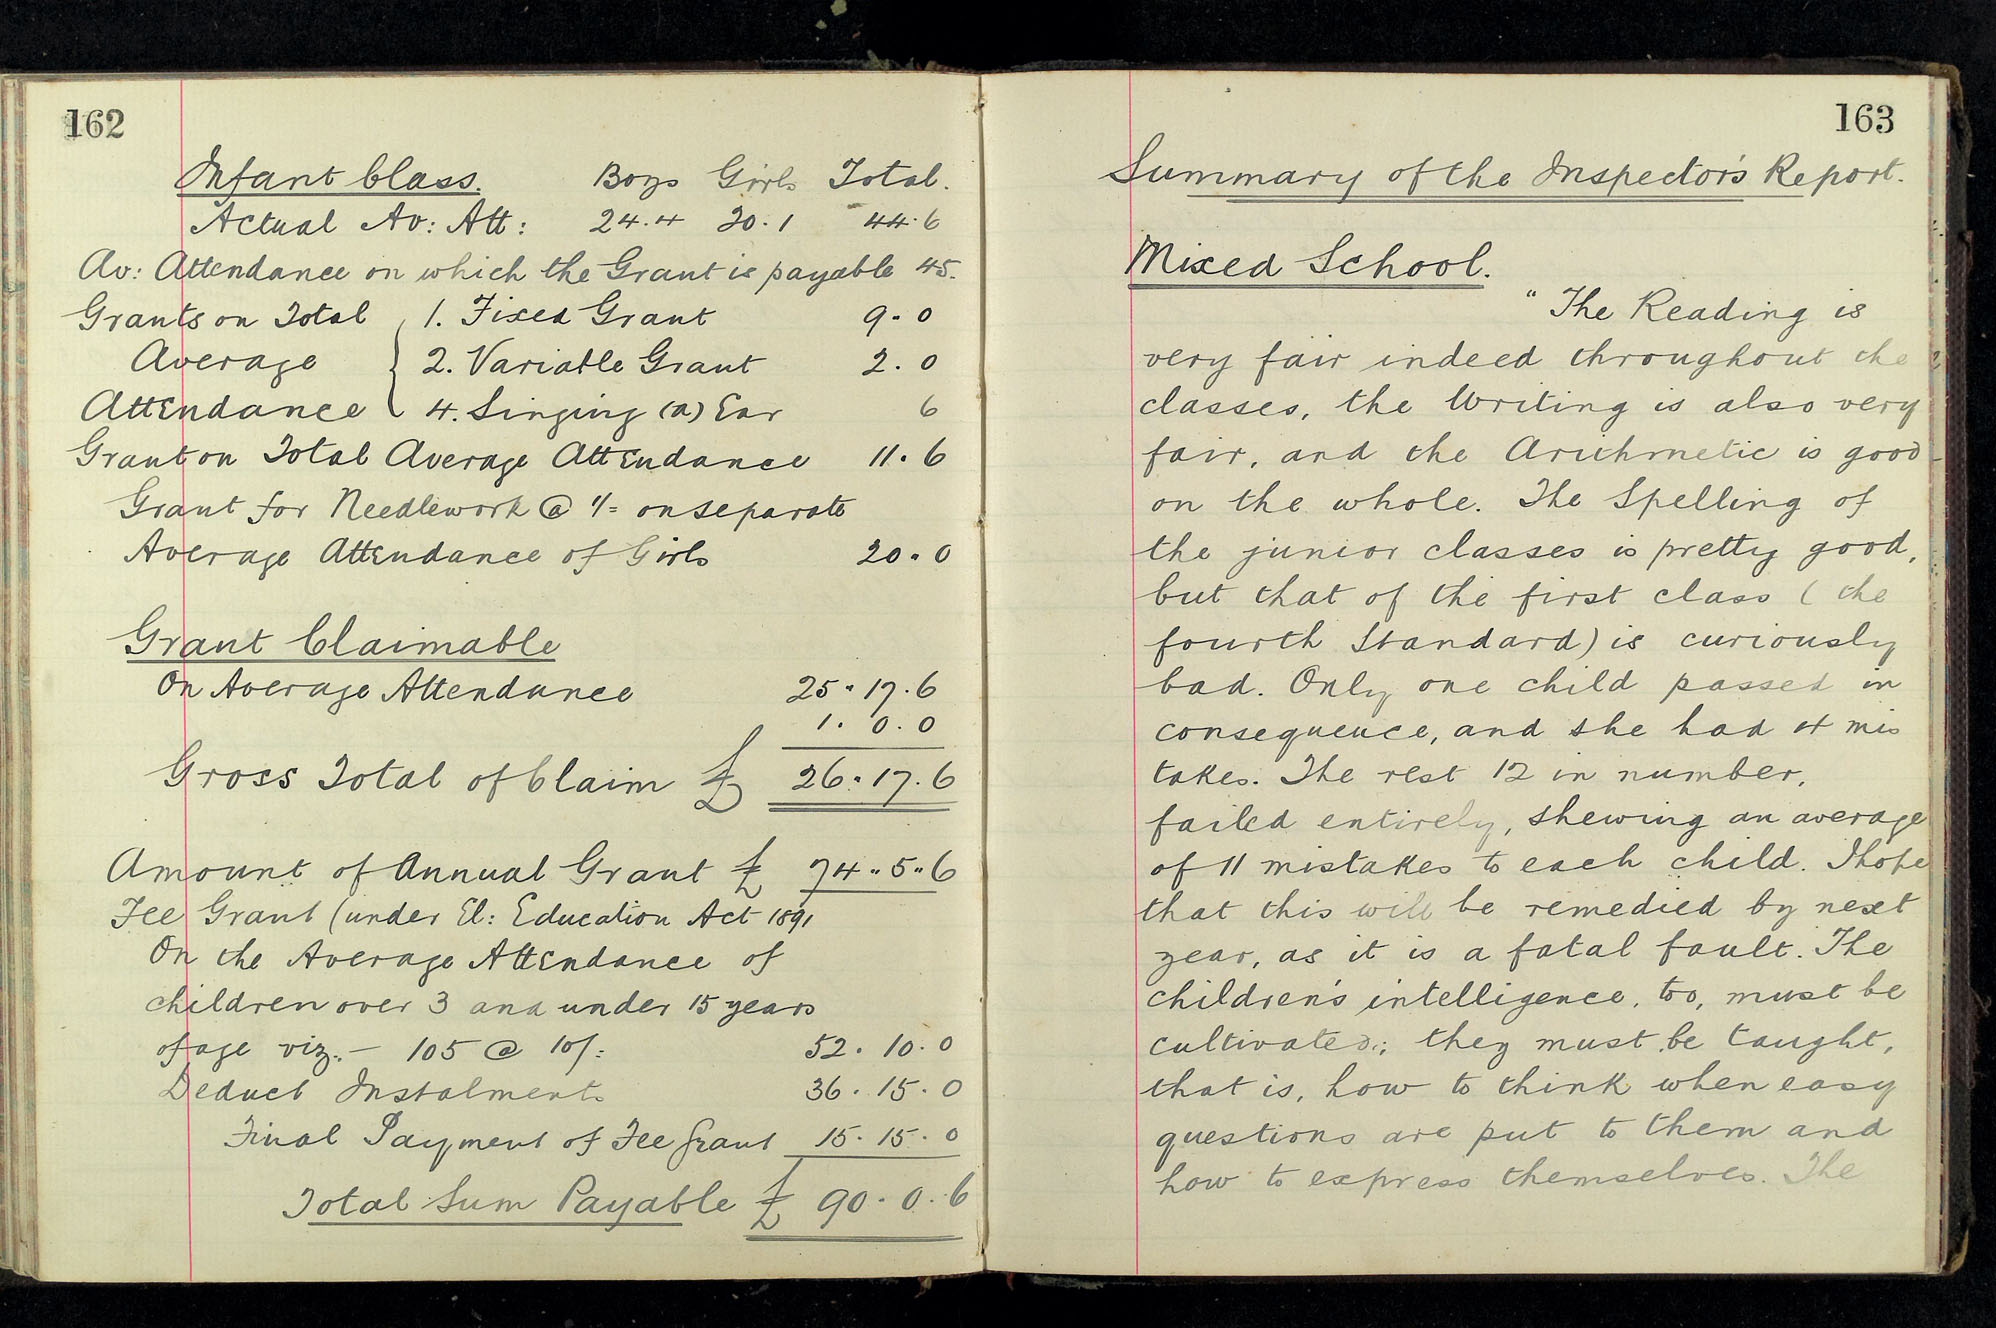 162
Infant Class. Boys Girls Total.
Actual Av: Att: 24.4 20.1 44.6
Av: Attendance on which the Grant is payable 45.
Grants on Total { 1. Fixed Grant 9. 0
Average 2. Variable Grant 2. 0
Attendance 4. Singing (a) Ear 6
Grant on Total Average Attendance 11. 6
Grant for Needlework @ 1/= on separate
Average Attendance of Girls 20. 0
Grant Claimable
On Average Attendance 25. 17. 6
1. 0. 0
Gross Total of Claim £ 26. 17. 6
Amount of Annual Grant £ 74 " 5 " 6
Fee Grant (under El: Education Act 1891
On the Average Attendance of
children over 3 and under 15 years
of age viz:- 105 @ 10/= 52. 10. 0
Deduct Instalments 36. 15. 0
Final Payment of Fee Grant 15. 15. 0
Total Sum Payable £ 90. 0. 6
163
Summary of the Inspector's Report.
Mixed School.
"The Reading is
very fair indeed throughout the
classes, the Writing is also very
fair, and the Arithmetic is good
on the whole. The Spelling of
the junior classes is pretty good,
but that of the first class ( the
fourth Standard) is curiously
bad. Only one child passed in
consequence, and she had 4 mis
takes. The rest 12 in number,
failed entirely, shewing an average
of 11 mistakes to each child. I hope
that this will be remedied by next
year, as it is a fatal fault. The
children's intelligence, too, must be
cultivated; they must be taught,
that is, how to think when easy
questions are put to them and
how to express themselves. The